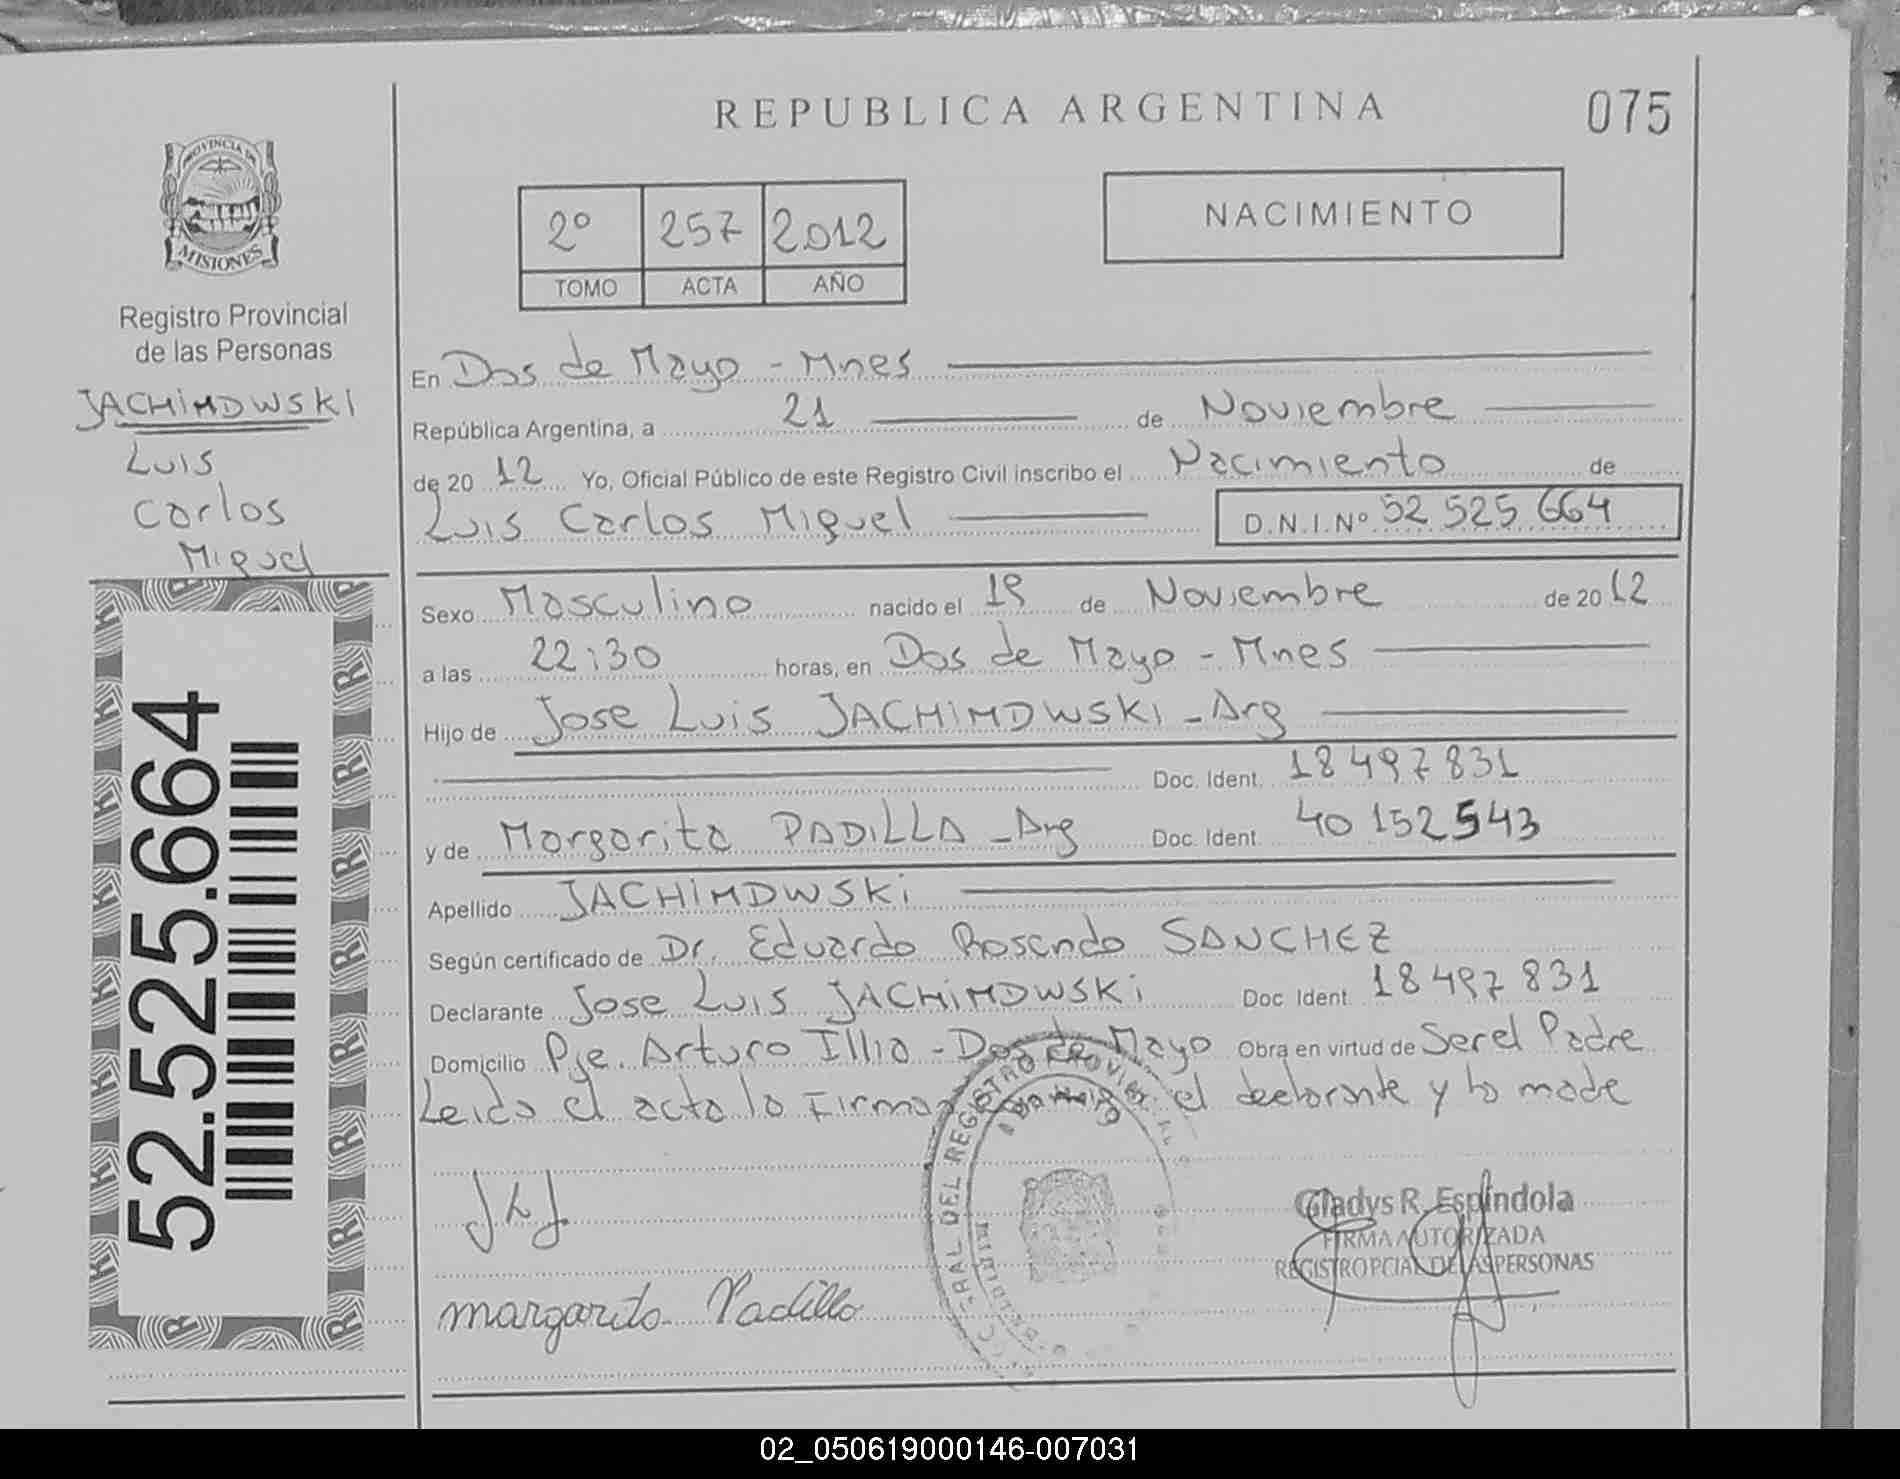 REPUBLICA ARGENTINA
075
PROVINCIA DE
MISIONES
Registro Provincial
de las Personas
JACHIMOWSKI
Luis
Carlos
Miguel
52.525.664
2º 257 2012
TOMO ACTA AÑO
NACIMIENTO
En Dos de Mayo - Mnes
República Argentina, a 21 de Noviembre
de 2012 Yo, Oficial Público de este Registro Civil inscribo el Nacimiento de
Luis Carlos Miguel D.N.I.Nº 52 525 664
Sexo Masculino nacido el 19 de Noviembre de 2012
a las 22:30 horas, en Dos de Mayo - Mnes
Hijo de Jose Luis JACHIMOWSKI - Arg
Doc. Ident. 18 497 831
y de Margarita PADILLA - Arg Doc. Ident. 40 152 543
Apellido JACHIMOWSKI
Según certificado de Dr. Eduardo Rosendo SANCHEZ
Declarante Jose Luis JACHIMOWSKI Doc Ident 18 497 831
Domicilio Pje. Arturo Illia - Dos de Mayo Obra en virtud de Ser el Padre
Leida el acta la Firman el declarante y la madre
JLJ
margarita Padilla
RAL DEL REGISTRO PROVINCIAL
Gladys R. Espíndola
FIRMA AUTORIZADA
REGISTRO PCIAL DE LAS PERSONAS
02_050619000146-007031